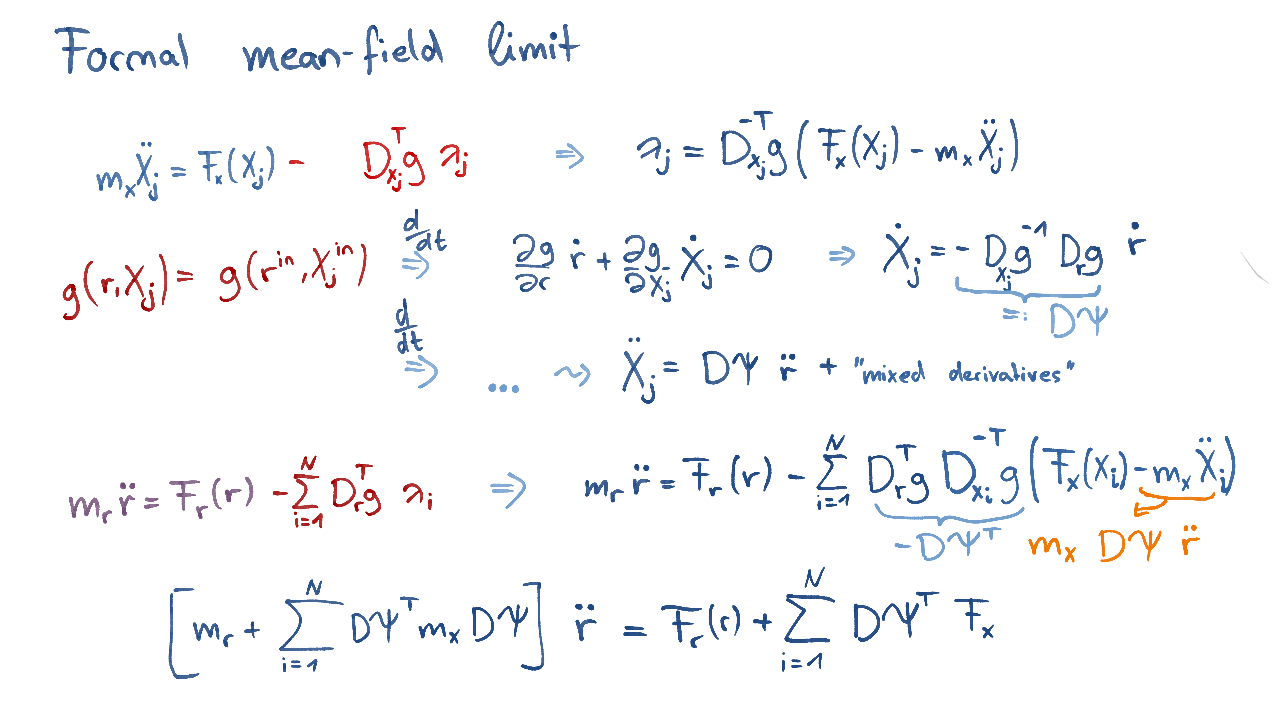 Formal mean-field limit
mₓẌⱼ = Fₓ(Xⱼ) − D_{xⱼ}^T g λⱼ ⇒ λⱼ = D_{xⱼ}^{-T} g (Fₓ(Xⱼ) − mₓ Ẍⱼ)
g(r, Xⱼ) = g(r^{in}, Xⱼ^{in}) d/dt ⇒ ∂g/∂r ṙ + ∂g/∂Xⱼ Ẋⱼ = 0 ⇒ Ẋⱼ = − D_{xⱼ} g^{-1} D_r g ṙ
=: DΨ
d/dt ⇒ ... ⇝ Ẍⱼ = DΨ r̈ + "mixed derivatives"
m_r r̈ = F_r(r) − ∑_{i=1}^{N} D_r^T g λ_i ⇒ m_r r̈ = F_r(r) − ∑_{i=1}^{N} D_r^T g D_{x_i}^{-T} g (Fₓ(X_i) − mₓ Ẍ_i)
−DΨ^T mₓ DΨ r̈
[m_r + ∑_{i=1}^{N} DΨ^T mₓ DΨ] r̈ = F_r(r) + ∑_{i=1}^{N} DΨ^T Fₓ